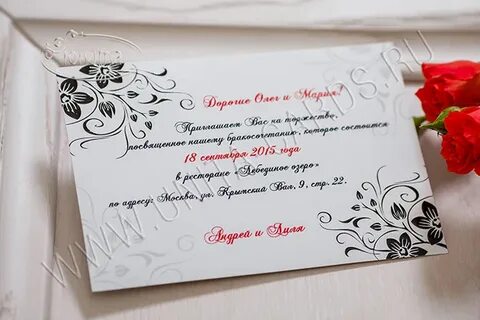 Дорогие Олег и Мария!
Приглашаем Вас на торжество,
посвященное нашему бракосочетанию, которое состоится
18 сентября 2015 года
в ресторане «Лебединое озеро»
по адресу: Москва, ул. Крымский Вал, 9, стр. 22.
Андрей и Лиля